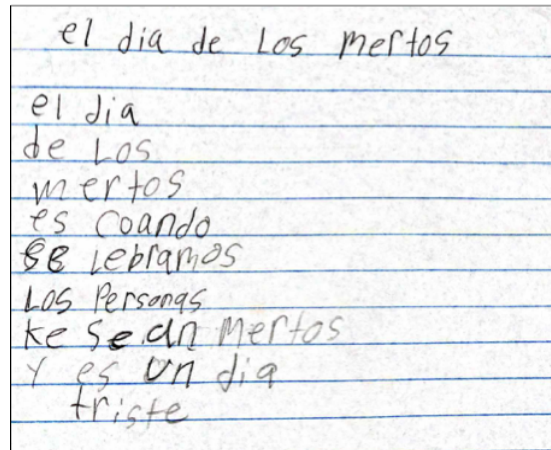 el dia de Los mertos
el dia
de Los
mertos
es coando
se lebramos
Los Personas
ke se an mertos
y es un dia
triste